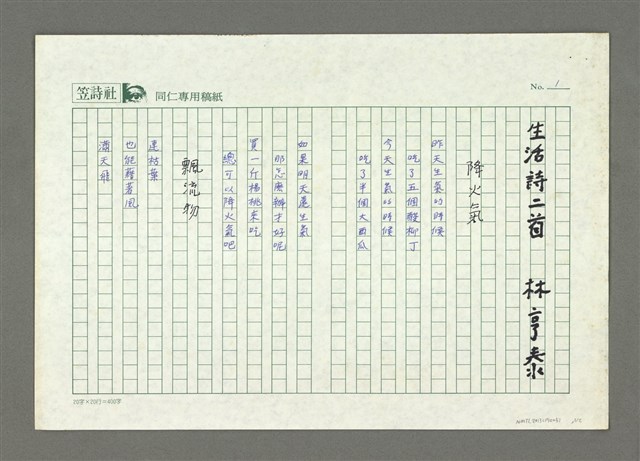 笠詩社 同仁專用稿紙
No. 1
生活詩二首 林亨泰
降火氣
昨天生氣的時候
吃了五個酸柳丁
今天生氣的時候
吃了半個大西瓜
如果明天還生氣
那怎麼辦才好呢
買一斤楊桃來吃
總可以降火氣吧
飄流物
連枯葉
也能藉著風
滿天飛
20字×20行=400字